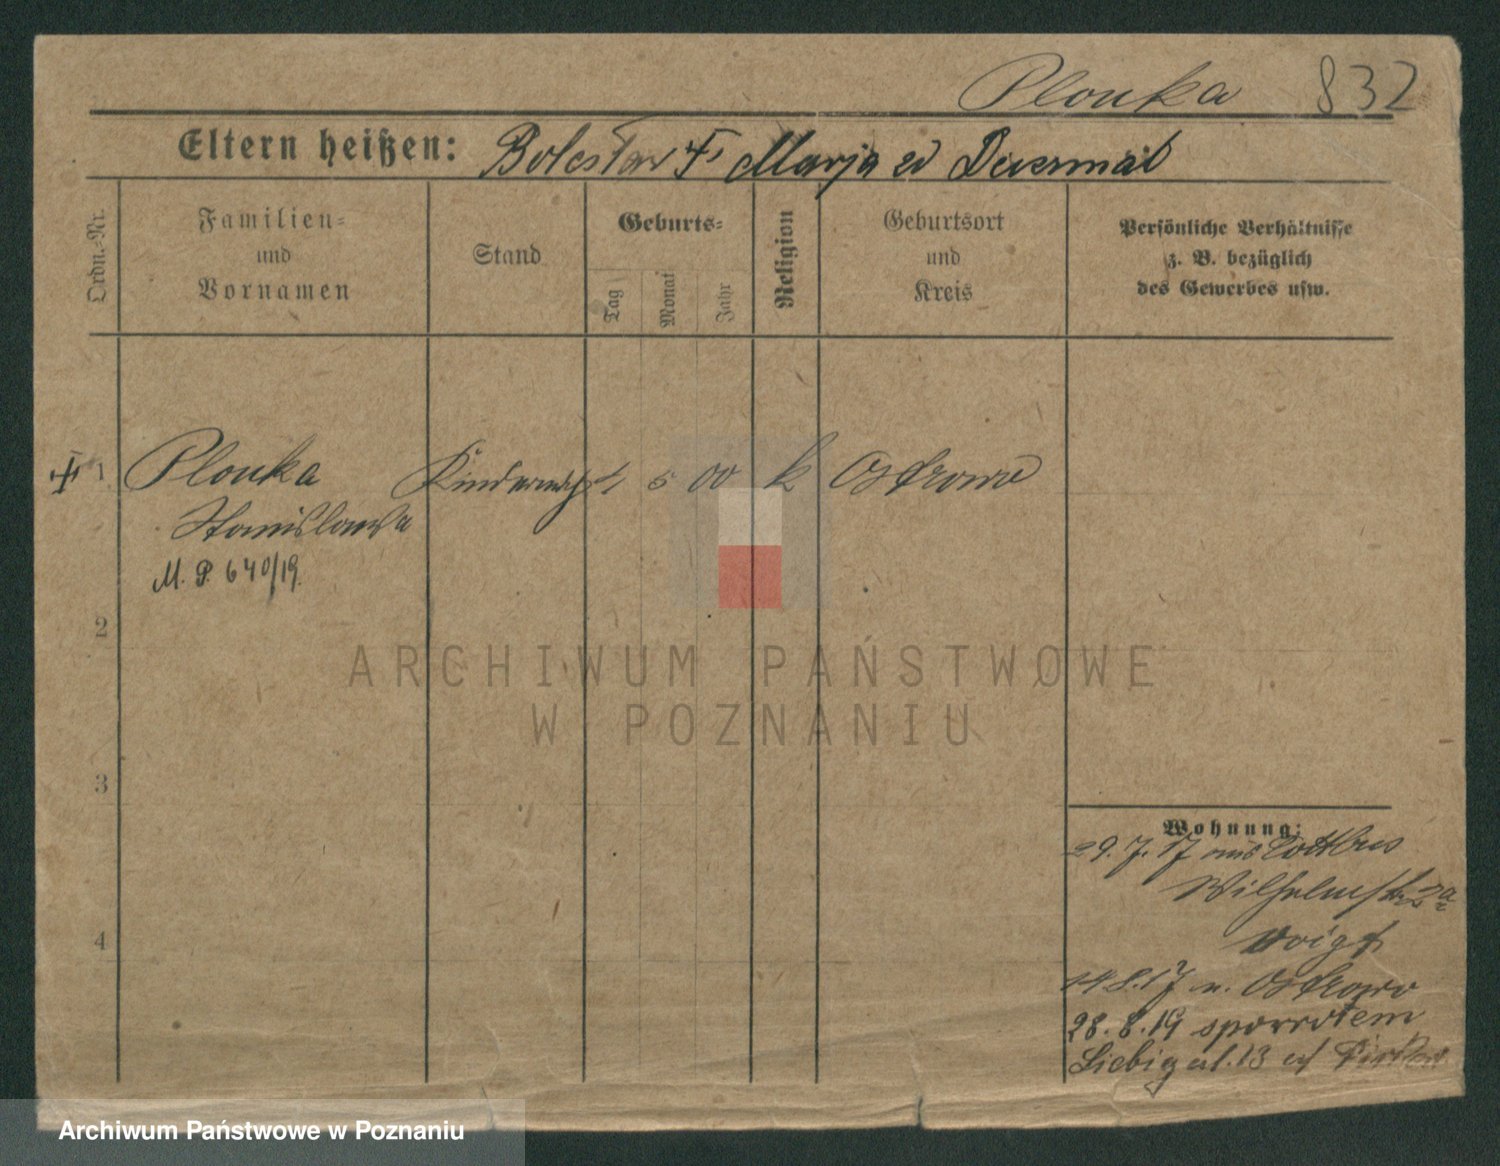 Plonka 832
Eltern heißen: Bolesław † Marja
Ordn.-Nr.
Familien-
und
Vornamen
Stand
Geburts-
Tag
Monat
Jahr
Religion
Geburtsort
und
Kreis
Persönliche Verhältnisse
z. B. bezüglich
des Gewerbes usw.
1 Plonka 1 5 00 k Ostrowo
Stanislawa
M. P. 640/19.
2
3
4
ARCHIWUM PAŃSTWOWE
W POZNANIU
Wohnung:
29. 7. 17 aus Cottbus
Wilhelmstr.
Voigt
14 8. 17 n. Ostrowo
28. 8. 19 spowrotem
13
Archiwum Państwowe w Poznaniu